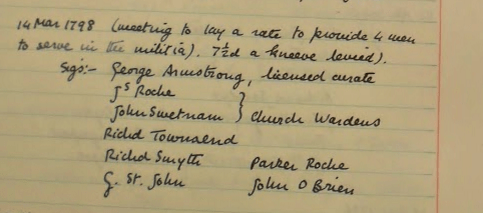 14 Mar 1798 (meeting to lay a rate to provide 4 men
to serve in the milit(ia). 7½d a kneeve levied).
Sigs:- George Armstrong, licensed curate
Js Roche
John Swetnam } Church Wardens
Richd Townsend
Richd Smyth Parker Roche
G. St. John John O Brien